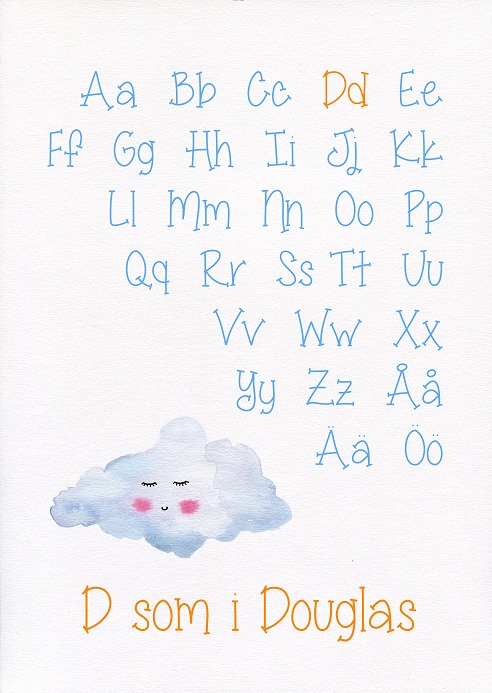 Aa Bb Cc Dd Ee
Ff Gg Hh Ii Jj Kk
Ll Mm Nn Oo Pp
Qq Rr Ss Tt Uu
Vv Ww Xx
Yy Zz Åå
Ää Öö
D som i Douglas